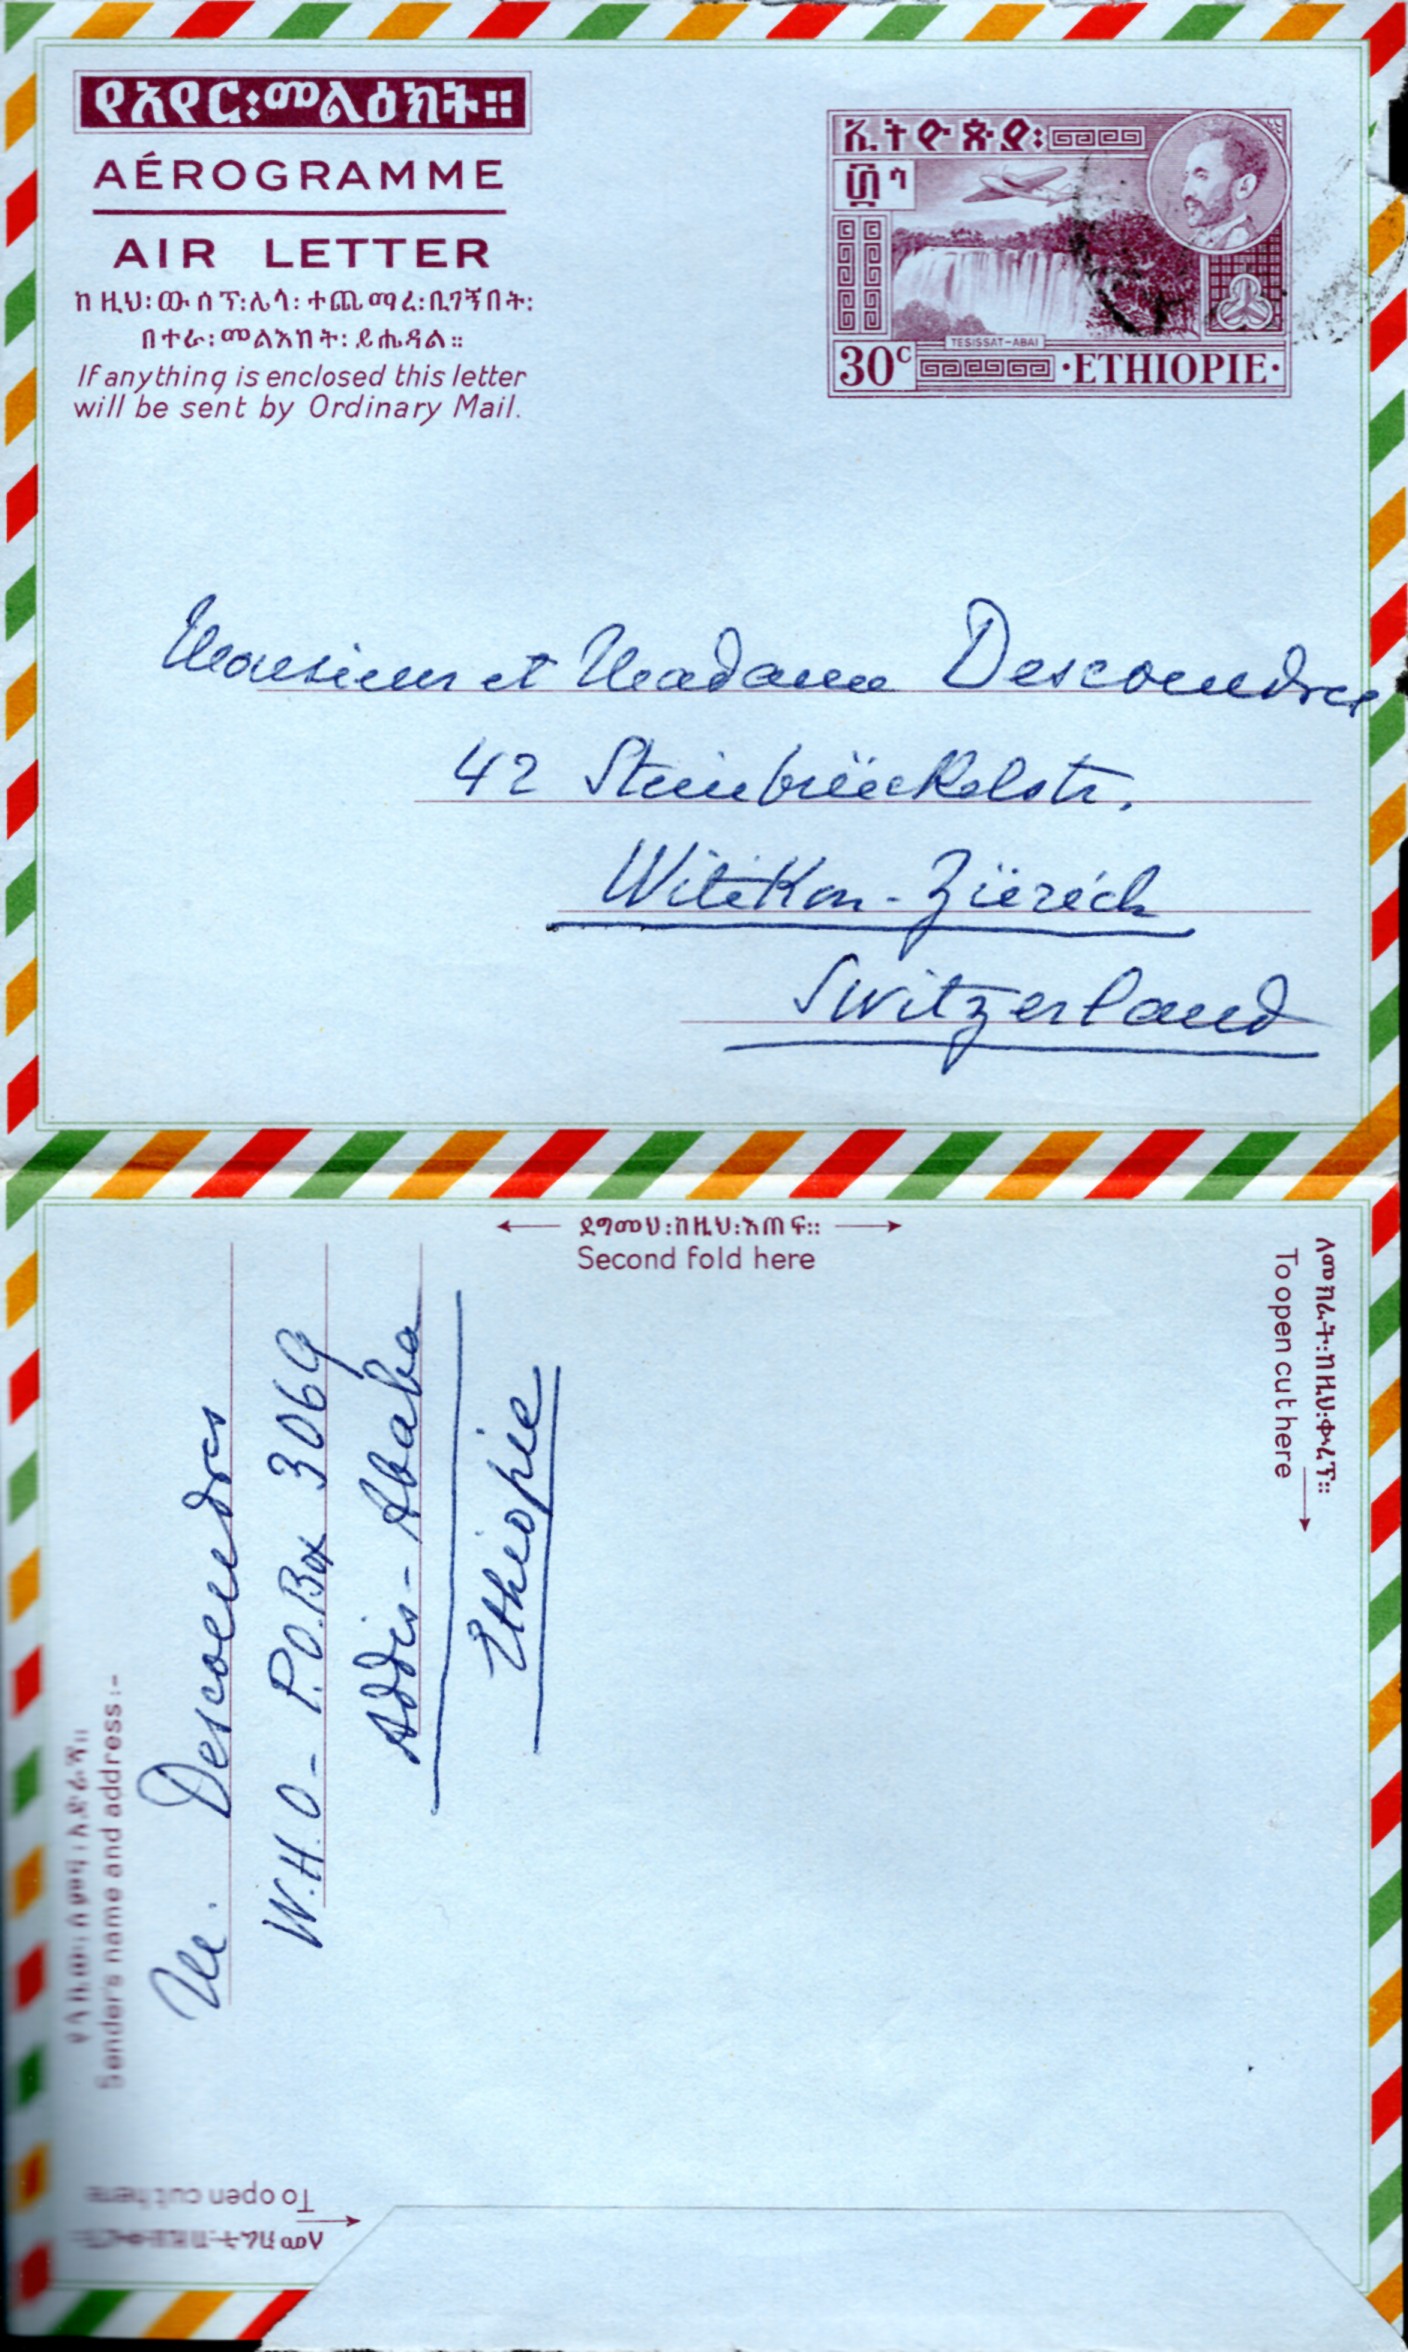 የአየር፡መልዕክት።
AÉROGRAMME
AIR LETTER
ከዚህ፡ውስጥ፡ሌላ፡ተጨማሪ፡ቢገኝበት፡
በተራ፡መልእክት፡ይሔዳል።
If anything is enclosed this letter
will be sent by Ordinary Mail.
ኢትዮጵያ፡
፴ ሳ
TESISSAT-ABAI
30c ·ETHIOPIE·
Monsieur et Madame Descoeudres
42 Steinbrüchelstr.
Witikon - Zürich
Switzerland
ደግመህ፡ከዚህ፡እጠፍ።
Second fold here
ለመክፈት፡ከዚህ፡ቁረጥ።
To open cut here
Sender's name and address:-
M. Descoeudres
W.H.O - P.O.Box 3069
Addis-Ababa
Ethiopie
To open cut here